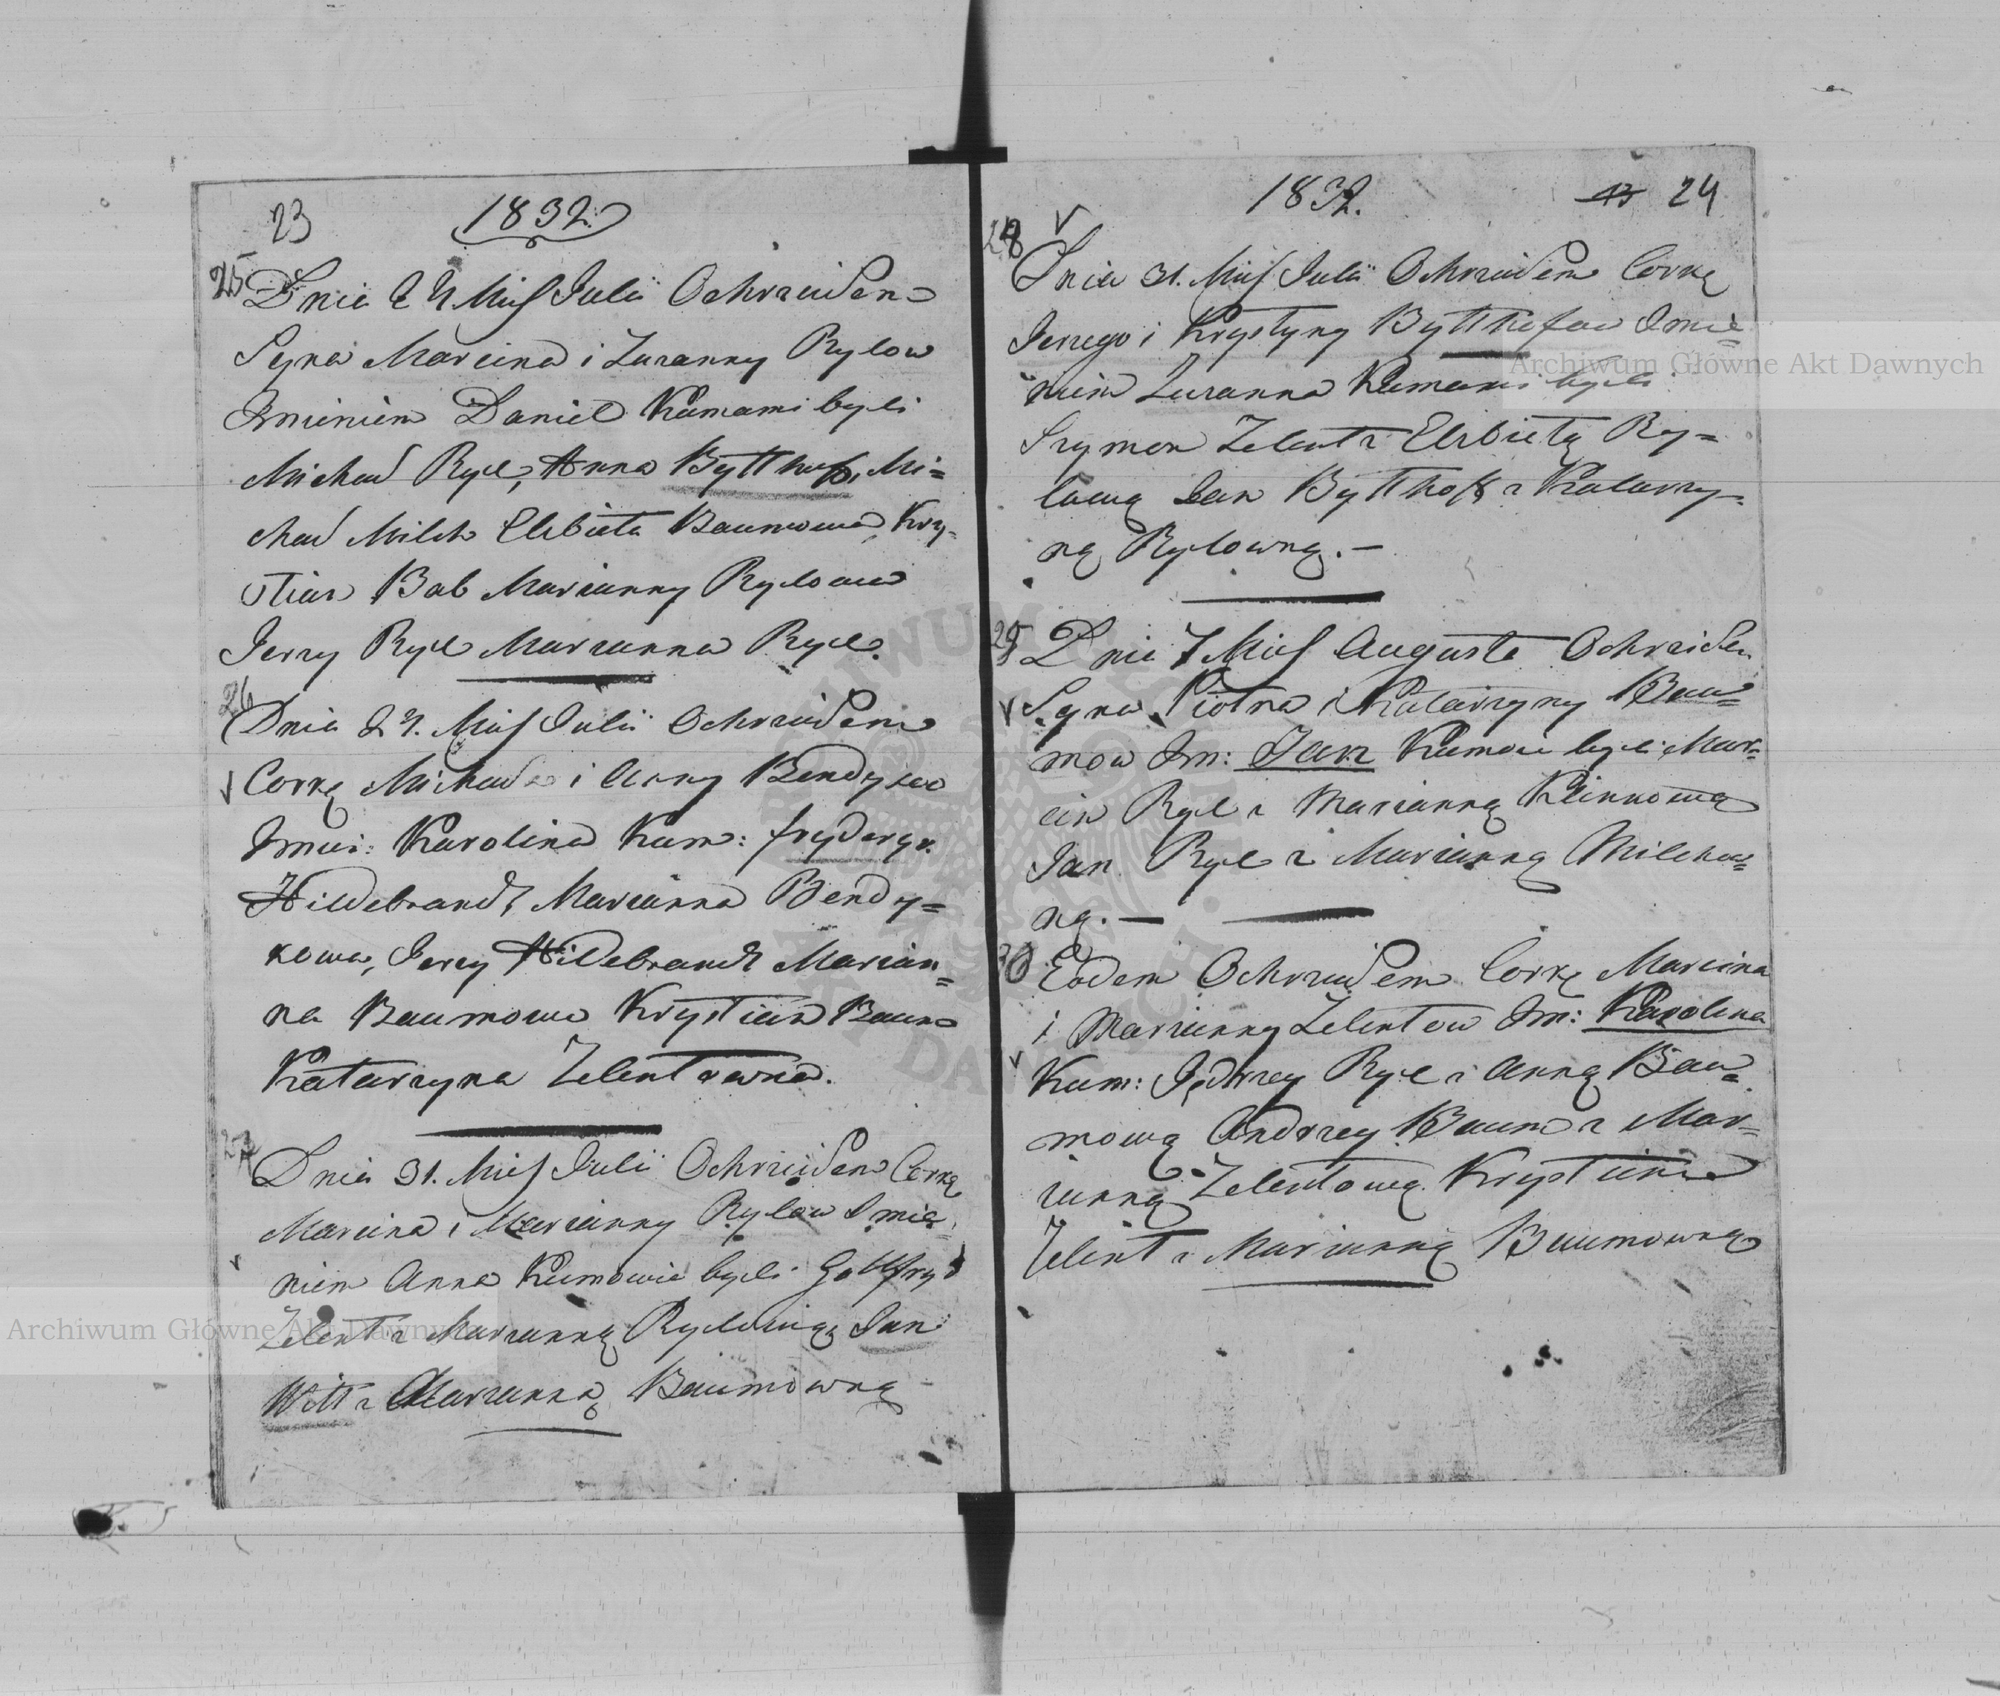 23 1832.
25
Dnia 24 Mĩs Julii Ochrzciłem
Syna Marcina i Zuzanny Rylow
Imieniem Daniel Kumami byli
Michał Ryl, Anna Bytthof, Mi=
chał Milch Elzbieta Baumowa, Kry=
stian Bab Marianny Rylowa
Jerzy Ryl Marianna Ryl.
26
Dnia 27. Mis Julii Ochrzciłem
Corkę Michała i Anny Bendykow
Imui: Karolina Kum: fryderyk
Hildebrandt, Marianna Bendy=
kowa, Jerzy Hildebrandt Marian=
na Baumowa Krystian Baum
Katarzyna Zelentowna.
27
Dnia 31. Mis Julii Ochrzciłem Corkę
Marcina i Marianny Rylow Imie=
niem Anna Kumowie byli Gottfryd
Zelent z Marianną Rylowną Jan
Witt z Marianną Baumowną
1832. 24
28
Dnia 31. Mis Julii Ochrzciłem Corkę
Jerzego i Krystyny Bytthofow Imie=
niem Zuzanna Kumami byli
Szymon Zelent z Elzbietą Ry=
lową Jan Bytthof z Katarzy=
ną Rylowną. —
29
Dnia 7 Mis Augusta Ochrzciłem
Syna Piotra i Katarzyny Bau=
mow Im: Jan Kumowie byli Mar=
cin Ryl z Marianną Kleinową
Jan Ryl z Marianną Milchow=
ną. —
30
Eodem Ochrzciłem Corkę Marcina
i Marianny Zelentow Im: Karolina
Kum: Jędrzey Ryl z Anną Bau=
mową Andrzey Baum z Mar=
ianną Zelentową Krystian
Zelent z Marianną Baumowną
Archiwum Główne Akt Dawnych
Archiwum Główne Akt Dawnych